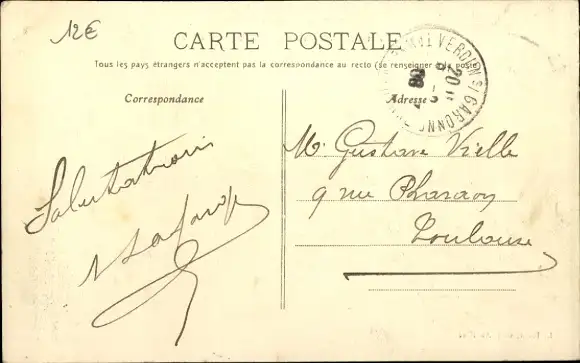 12€
CARTE POSTALE
Tous les pays étrangers n'acceptent pas la correspondance au recto (se renseigner à la poste)
Correspondance
Adresse
VERDUN S/ GARONNE
20
08
Salutations
M. Gustave Vielle
9 rue Pharaon
Toulouse